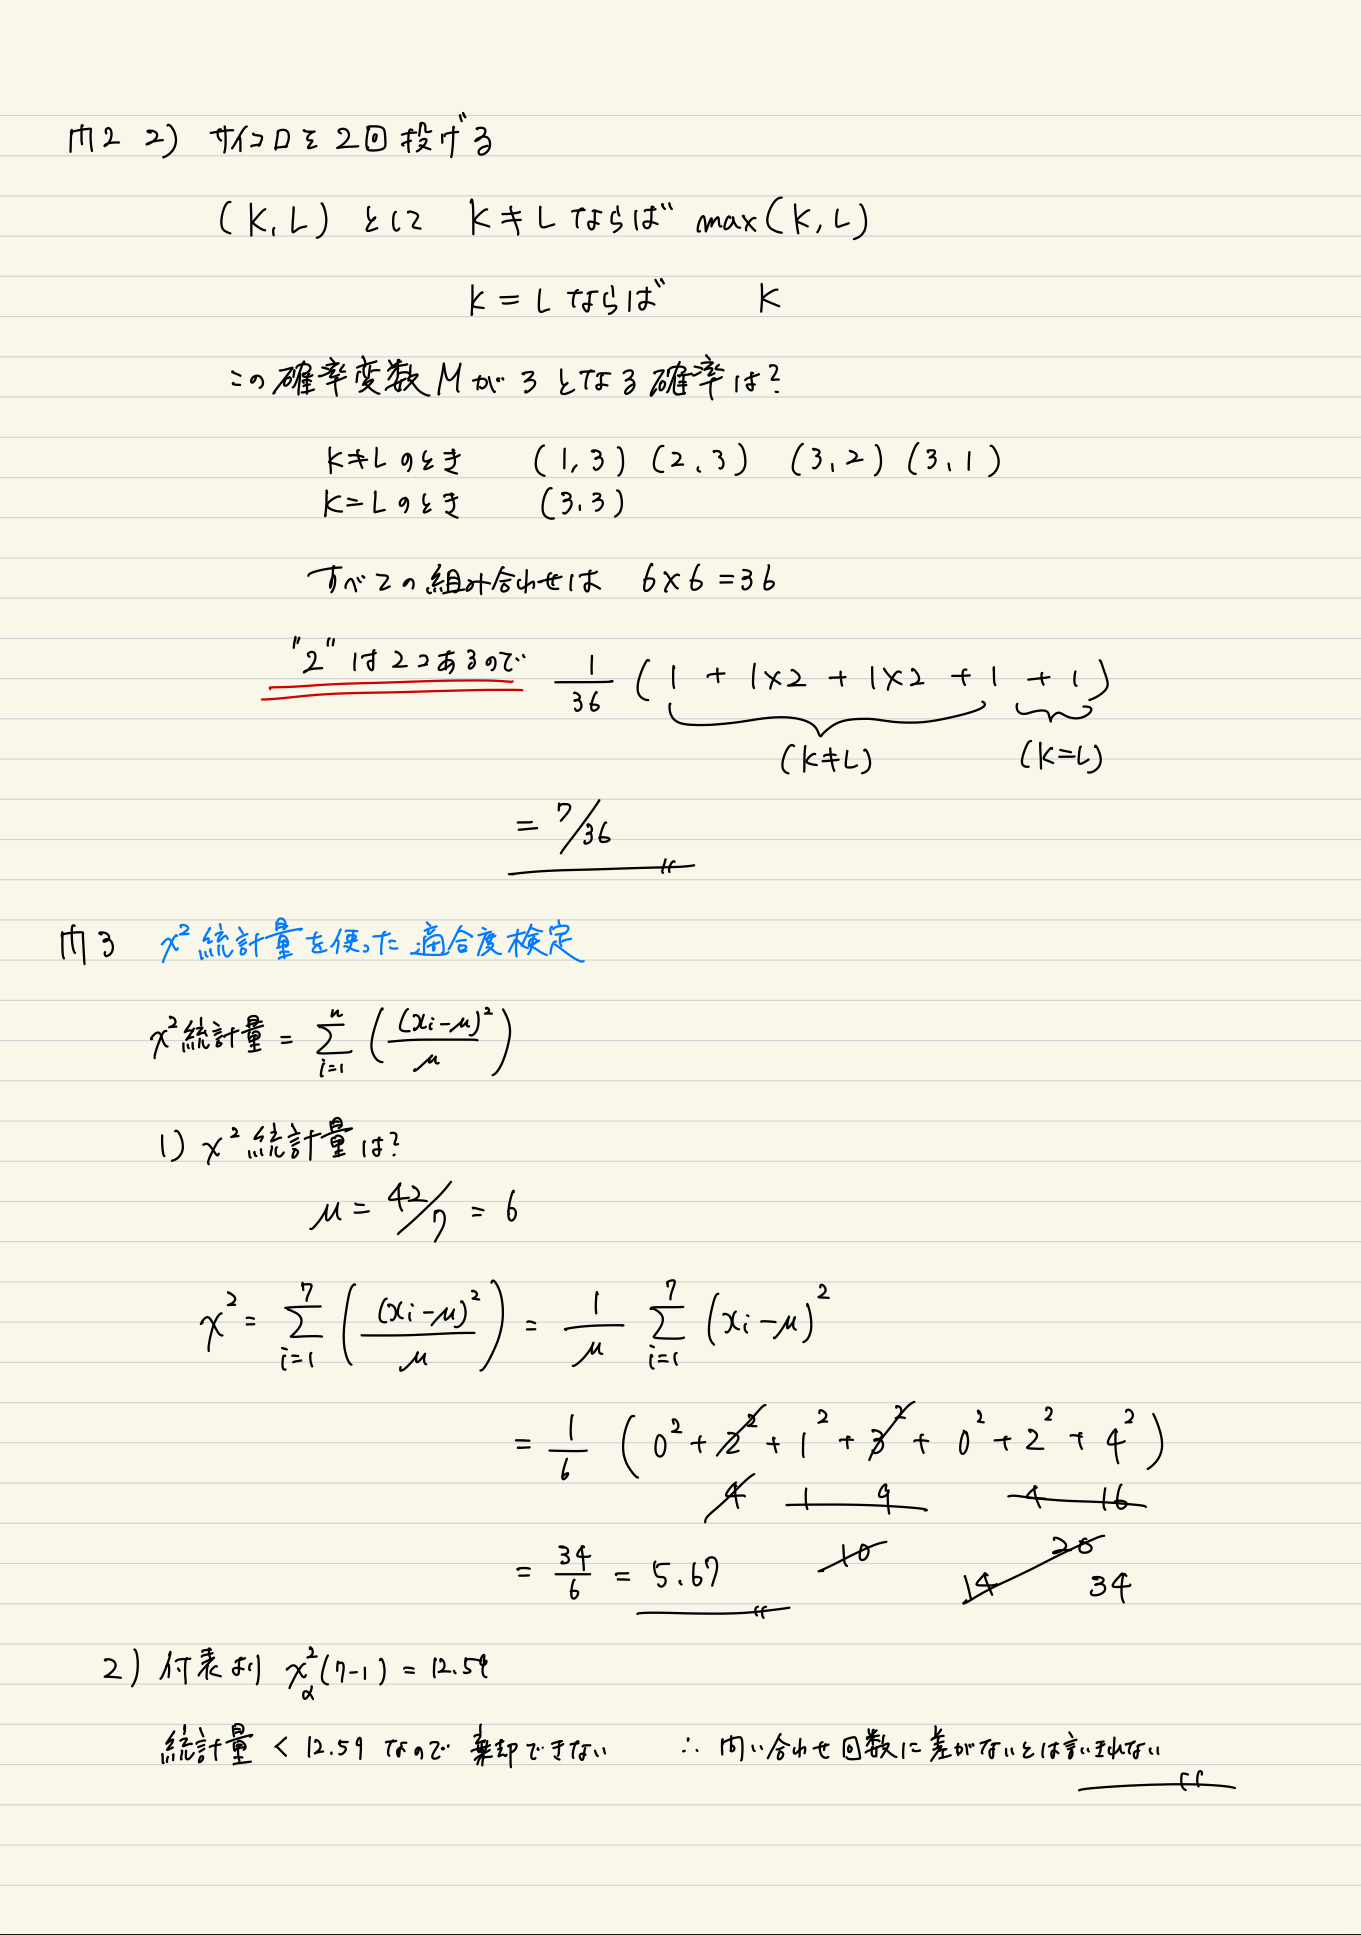 問2 2) サイコロを2回投げる
(K,L) として K≠Lならば max(K,L)
K=Lならば K
この確率変数Mが3となる確率は?
K≠Lのとき (1,3) (2,3) (3,2) (3,1)
K=Lのとき (3,3)
すべての組み合わせは 6×6=36
"2"は2コあるので 1/36 (1 + 1×2 + 1×2 + 1 + 1)
(K≠L) (K=L)
= 7/36
問3 χ²統計量を使った適合度検定
χ²統計量 = Σ_{i=1}^{n} ((xi-μ)²/μ)
1) χ²統計量は?
μ = 42/7 = 6
χ² = Σ_{i=1}^{7} ((xi-μ)²/μ) = 1/μ Σ_{i=1}^{7} (xi-μ)²
= 1/6 (0² + 2² + 1² + 3² + 0² + 2² + 4²)
4 1 9 4 16
= 34/6 = 5.67 10 20
14 34
2) 付表より χ²α(7-1) = 12.59
統計量 < 12.59 なので 棄却できない ∴ 問い合わせ回数に差がないとは言いきれない